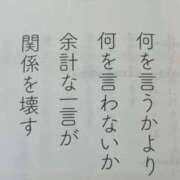 何を言うかより
何を言わないか
余計な一言が
関係を壊す